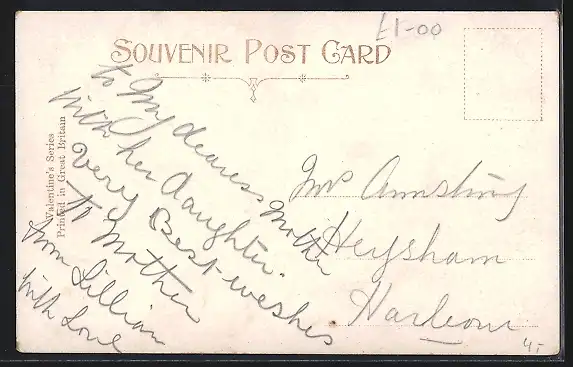 £1-00
SOUVENIR POST CARD
Valentine's Series
Printed in Great Britain
to My dearess Mother
with her Daughter.
Very Best weshes
To Mother
from Lillian
with Love
Mrs Armstrong
Heysham
Harbour
4,-